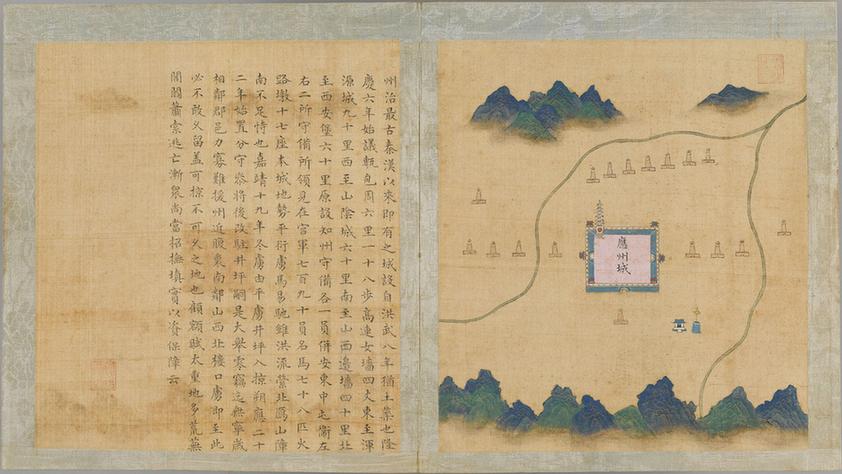 州治最古秦漢以來即有之城設自洪武八年猶土築也隆
慶六年始議甎包周六里一十八步高連女墻四丈東至渾
源城九十里西至山陰城六十里南至山西邊墻四十里北
至西安堡六十里原設知州守備各一員併安東中屯衞左
右二所守備所領見在官軍七百九十員名馬七十八匹火
路墩十七座本城地勢平衍虜馬易馳雖洪流縈北鴈山障
南不足恃也嘉靖十九年冬虜由平虜井坪入掠朔應二十
二年始置分守叅將後改駐井坪嗣是大舉零竊迄無寧歲
相鄰郡邑力寡難援州近腹裏南鄰山西北樓口虜即至此
必不敢久留蓋可掠不可久之地也顧額賦太重地多荒蕪
閭閻蕭索逃亡漸衆尚當招撫填實以資保障云
應州城